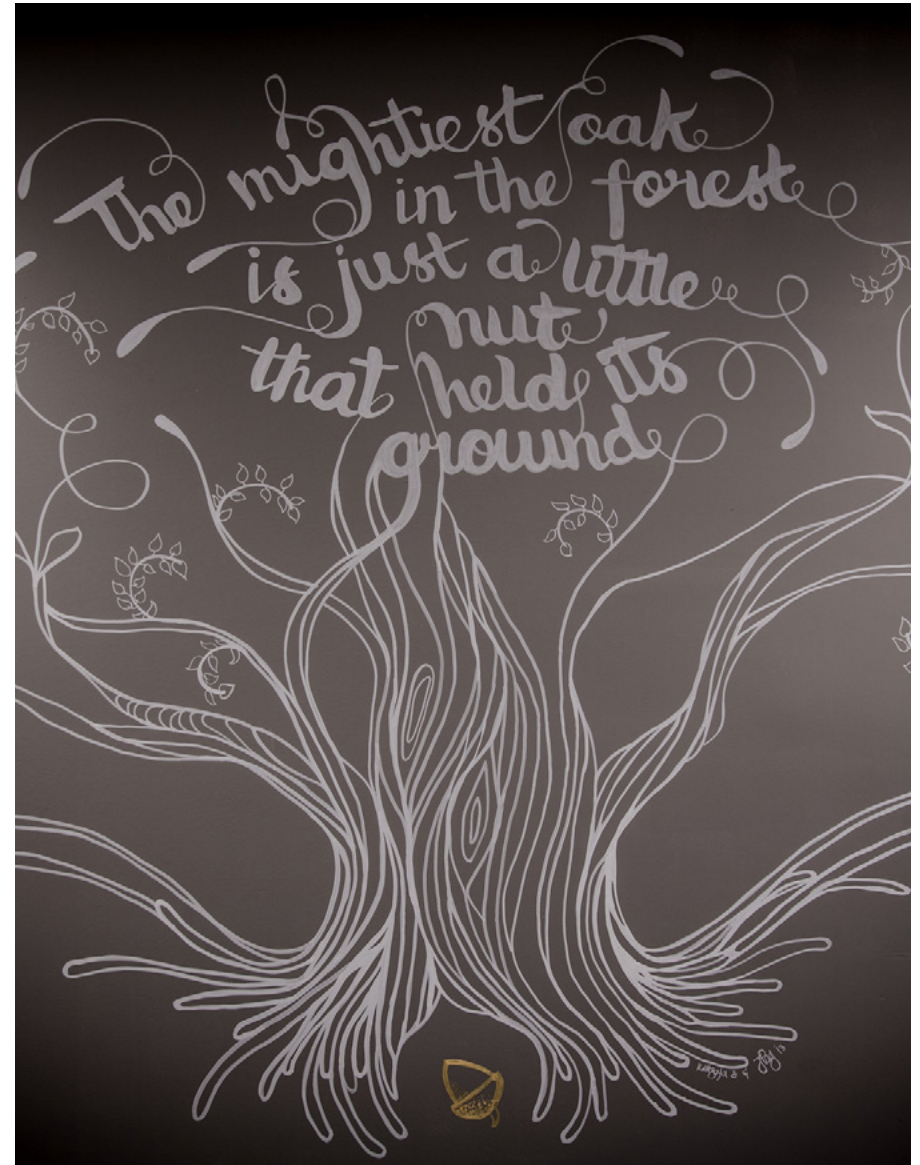 The mightiest oak
in the forest
is just a little
nut
that held its
ground